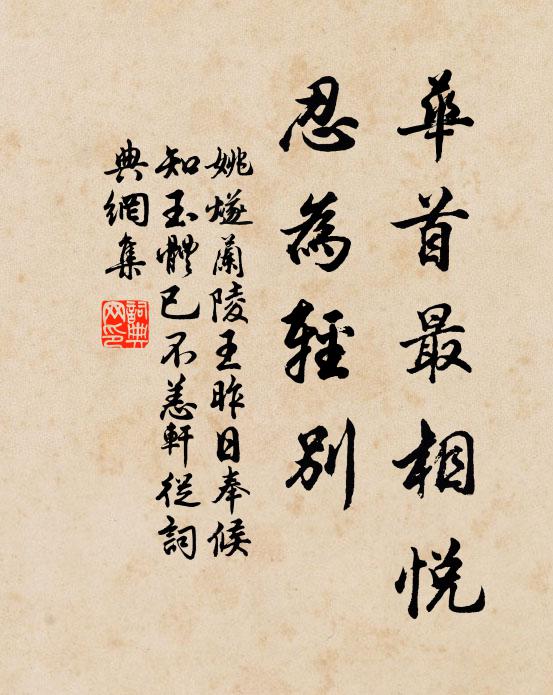 華首最相悅
忍為輕別
姚燧蘭陵王昨日奉候
知玉體已不恙軒從詞
典網集
詞典網印